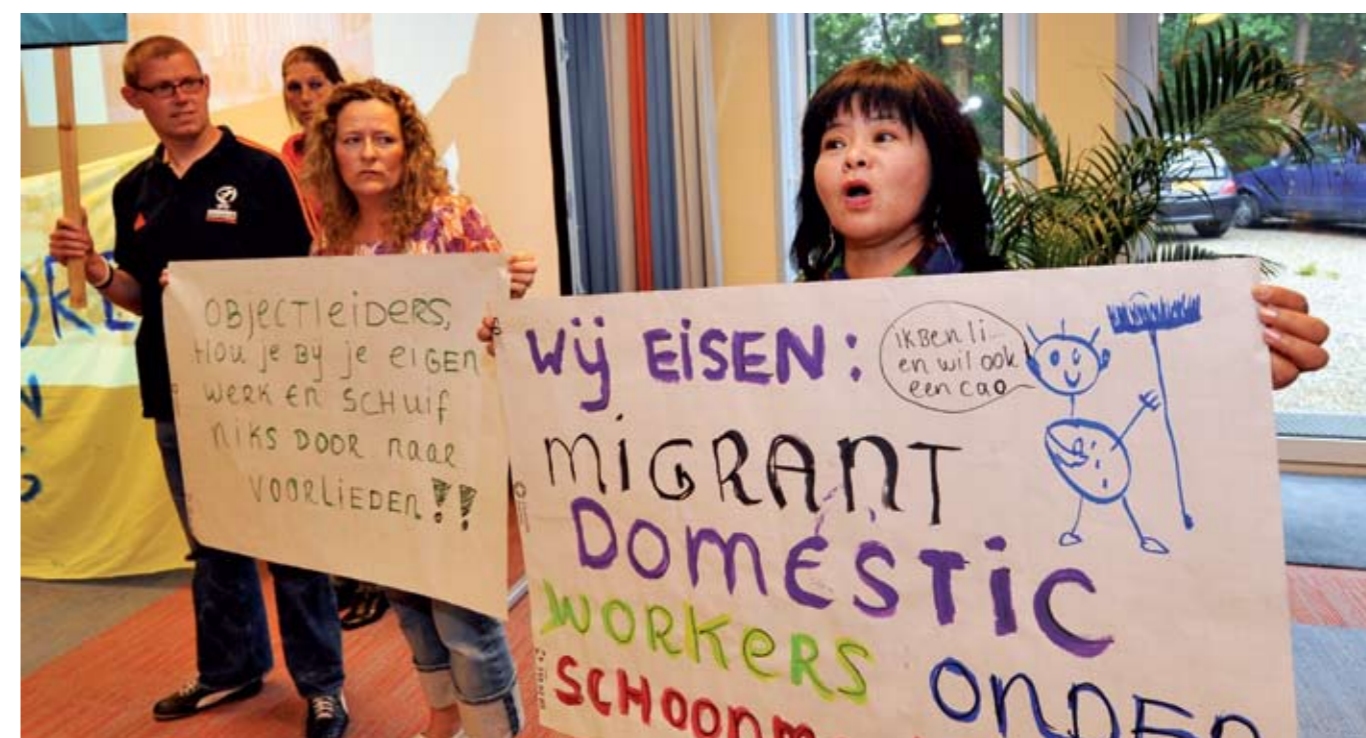 OBJECTLEIDERS,
HOU JE BY JE EIGEN
WERK EN SCHUIF
NIKS DOOR NAAR
VOORLIEDEN!!
Wij EISEN:
ik Ben li...
en wil ook
een cao
MIGRANT
DOMESTIC
WORKERS ONDER